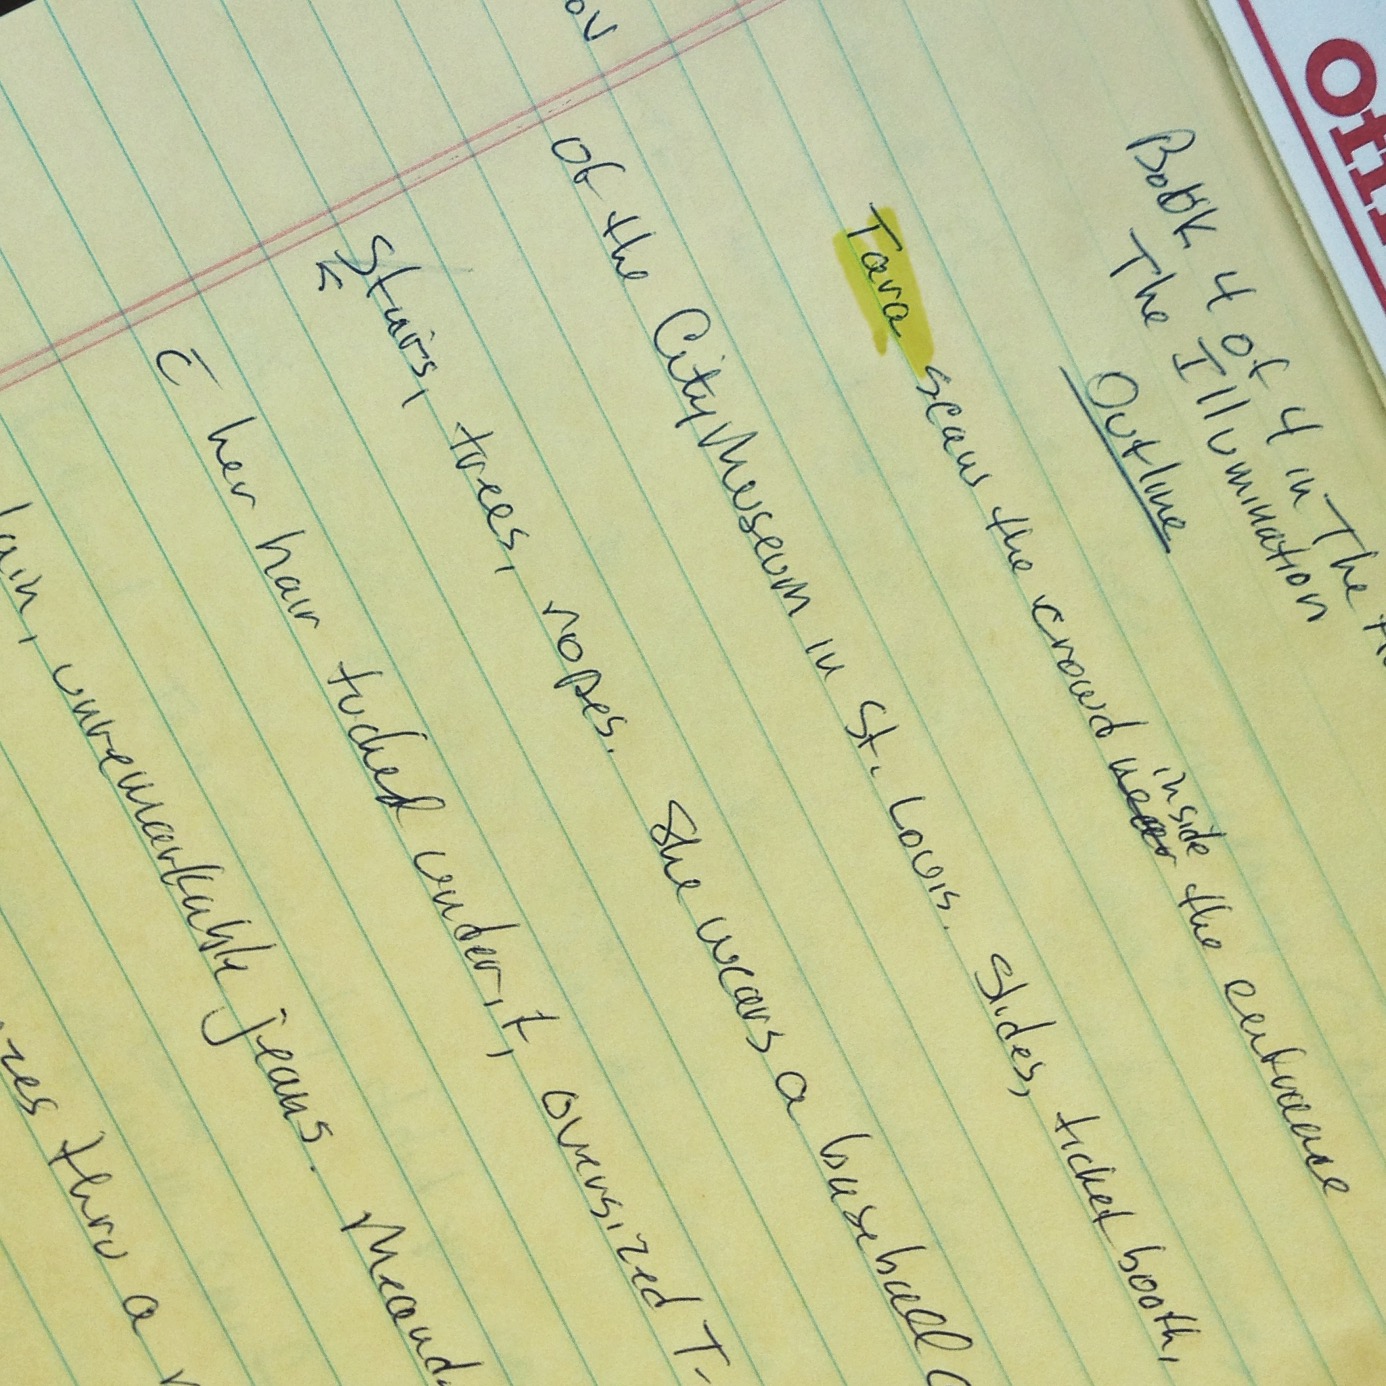 Book 4 of 4 in The
The Illumination
Outline
Tara scans the crowd near inside the entrance
of the City Museum in St. Louis. Slides, ticket booth,
Stairs, trees, ropes. She wears a baseball
c̄ her hair tucked under it, oversized T-
unremarkable jeans.
thru a